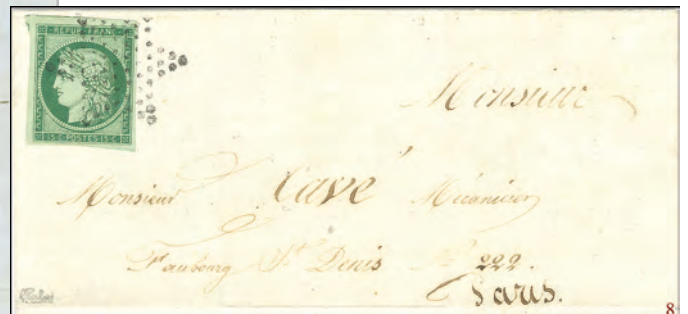 REPUB·FRANC·
15·C·POSTES·15·C·
Monsieur
Monsieur Cavé Mécanicien
Faubourg St Denis No 222.
Paris.
8